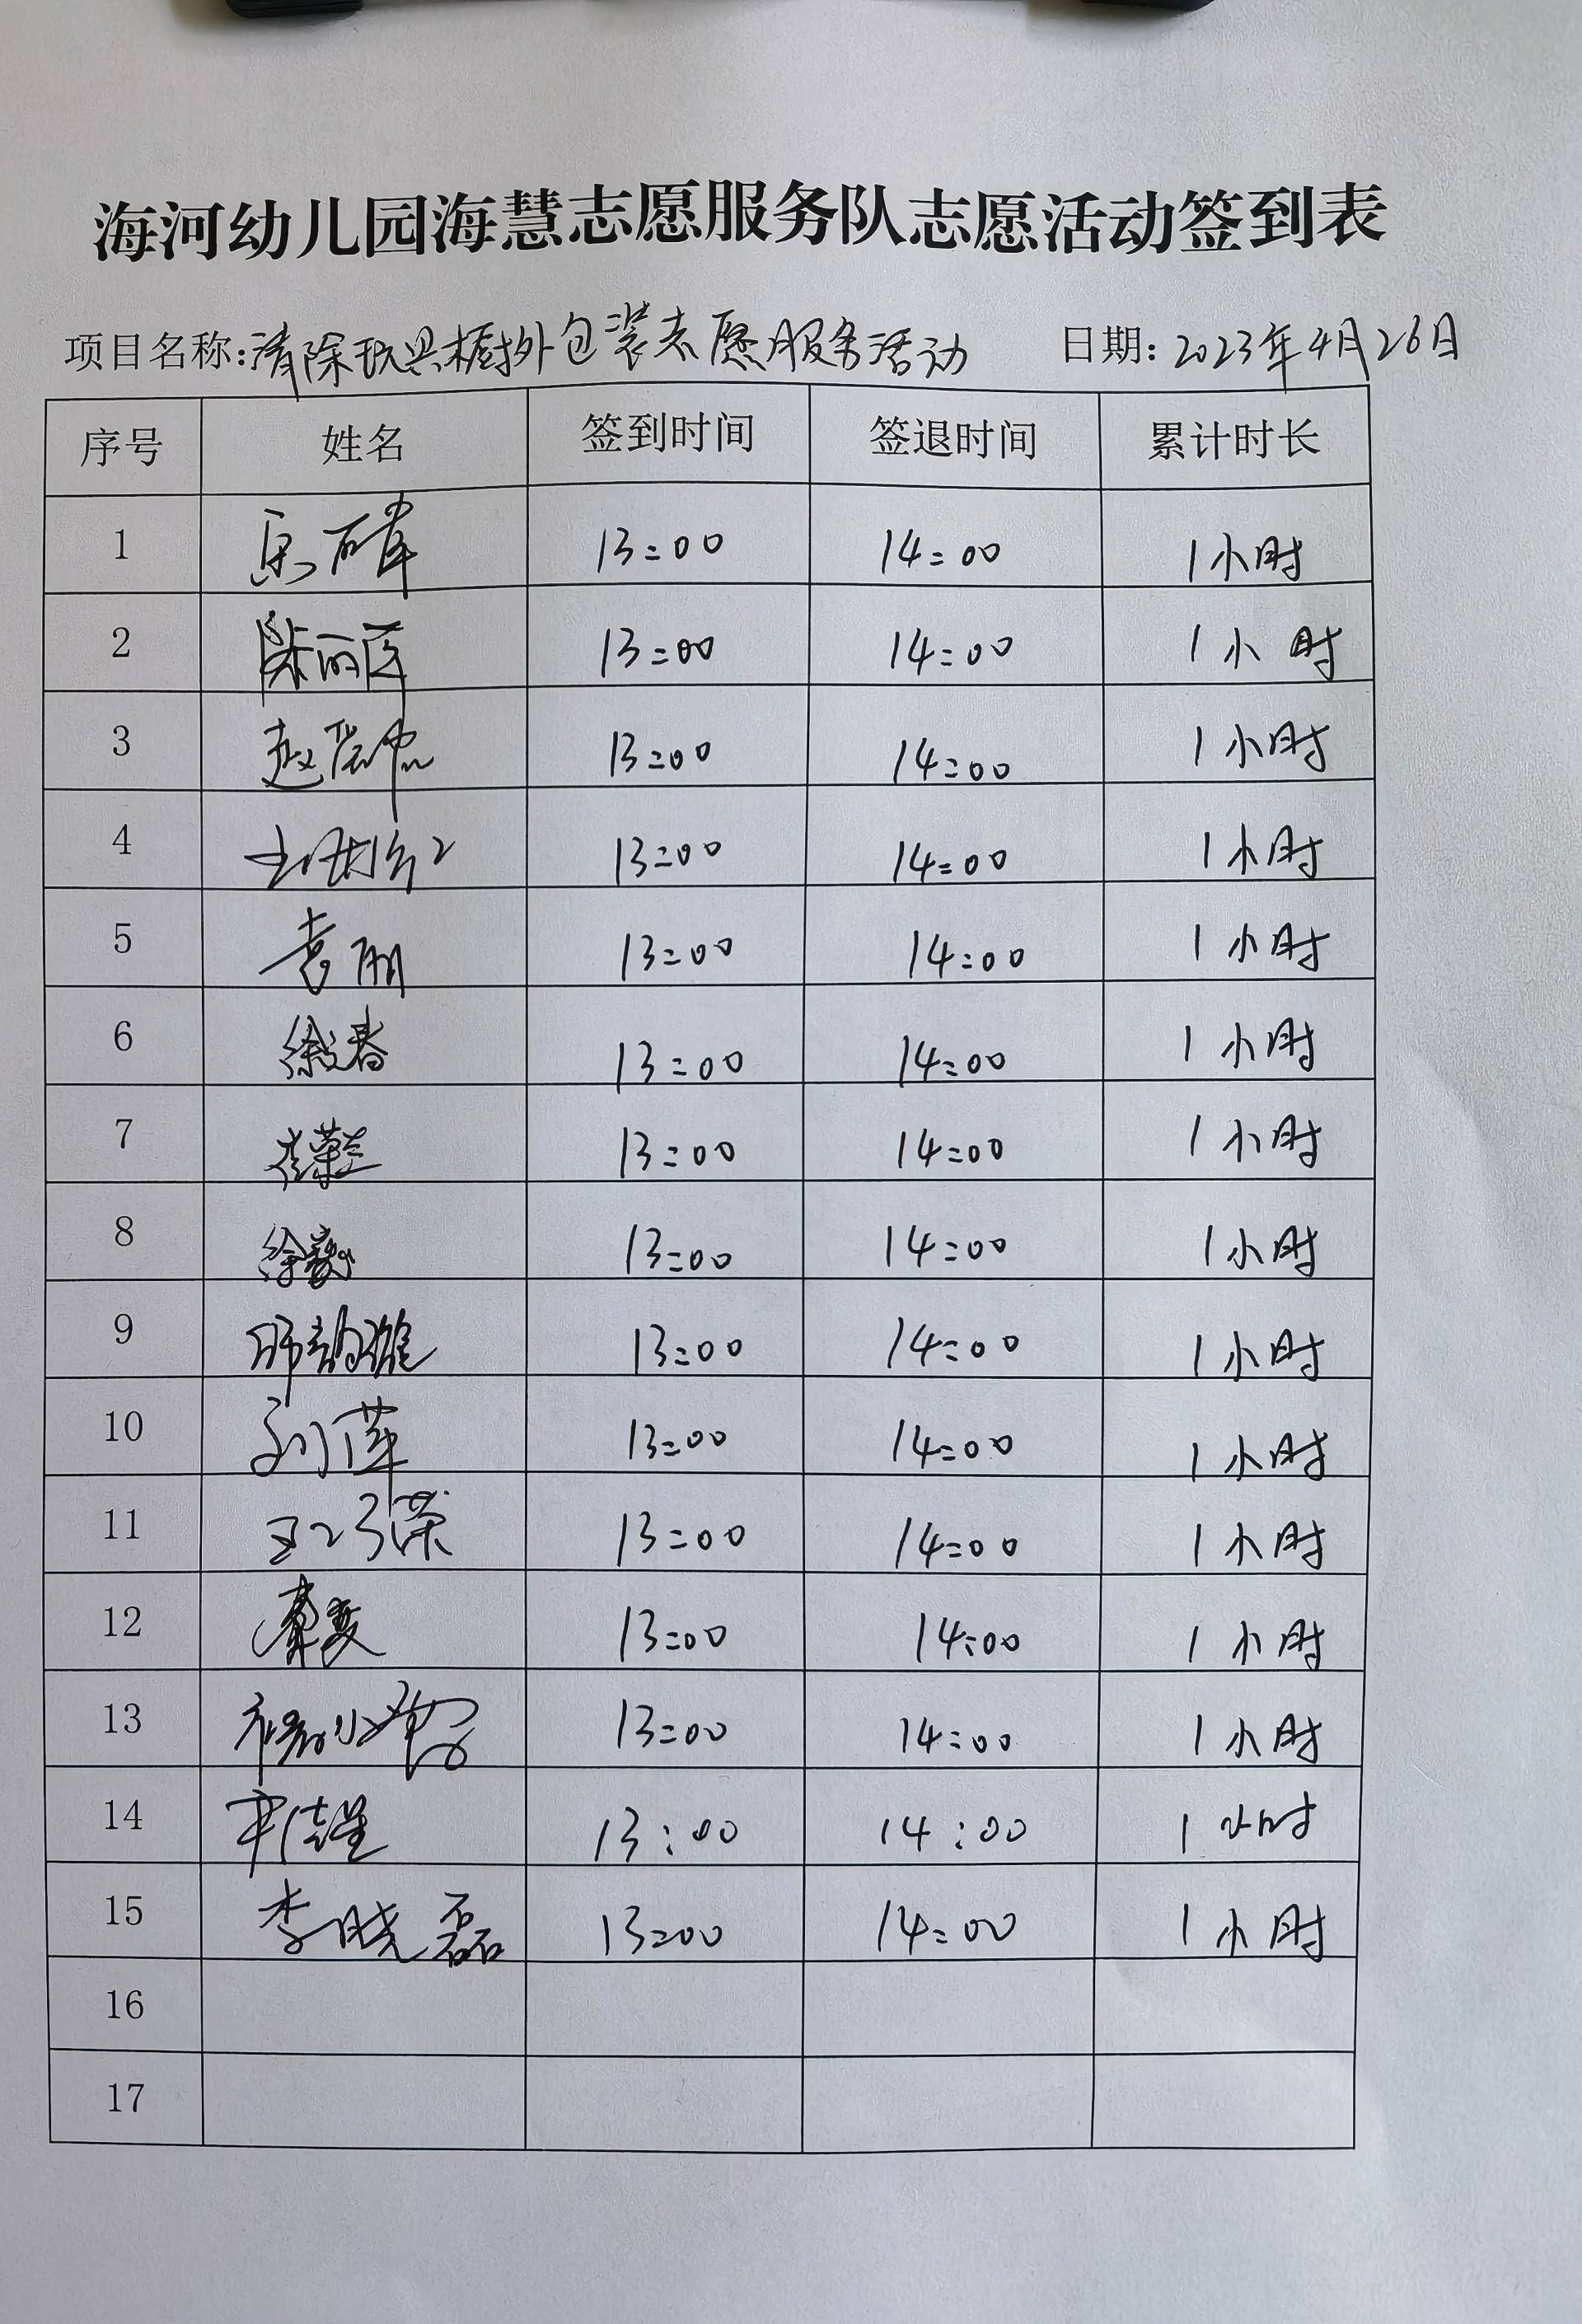 海河幼儿园海慧志愿服务队志愿活动签到表
项目名称:清除玩具橱外包装志愿服务活动 日期:2023年4月26日
序号 姓名 签到时间 签退时间 累计时长
1 13:00 14:00 1小时
2 13:00 14:00 1小时
3 赵 13:00 14:00 1小时
4 13:00 14:00 1小时
5 袁丽 13:00 14:00 1小时
6 徐春 13:00 14:00 1小时
7 13:00 14:00 1小时
8 徐 13:00 14:00 1小时
9 13:00 14:00 1小时
10 刘萍 13:00 14:00 1小时
11 王 13:00 14:00 1小时
12 13:00 14:00 1小时
13 13:00 14:00 1小时
14 13:00 14:00 1小时
15 李晓磊 13:00 14:00 1小时
16
17